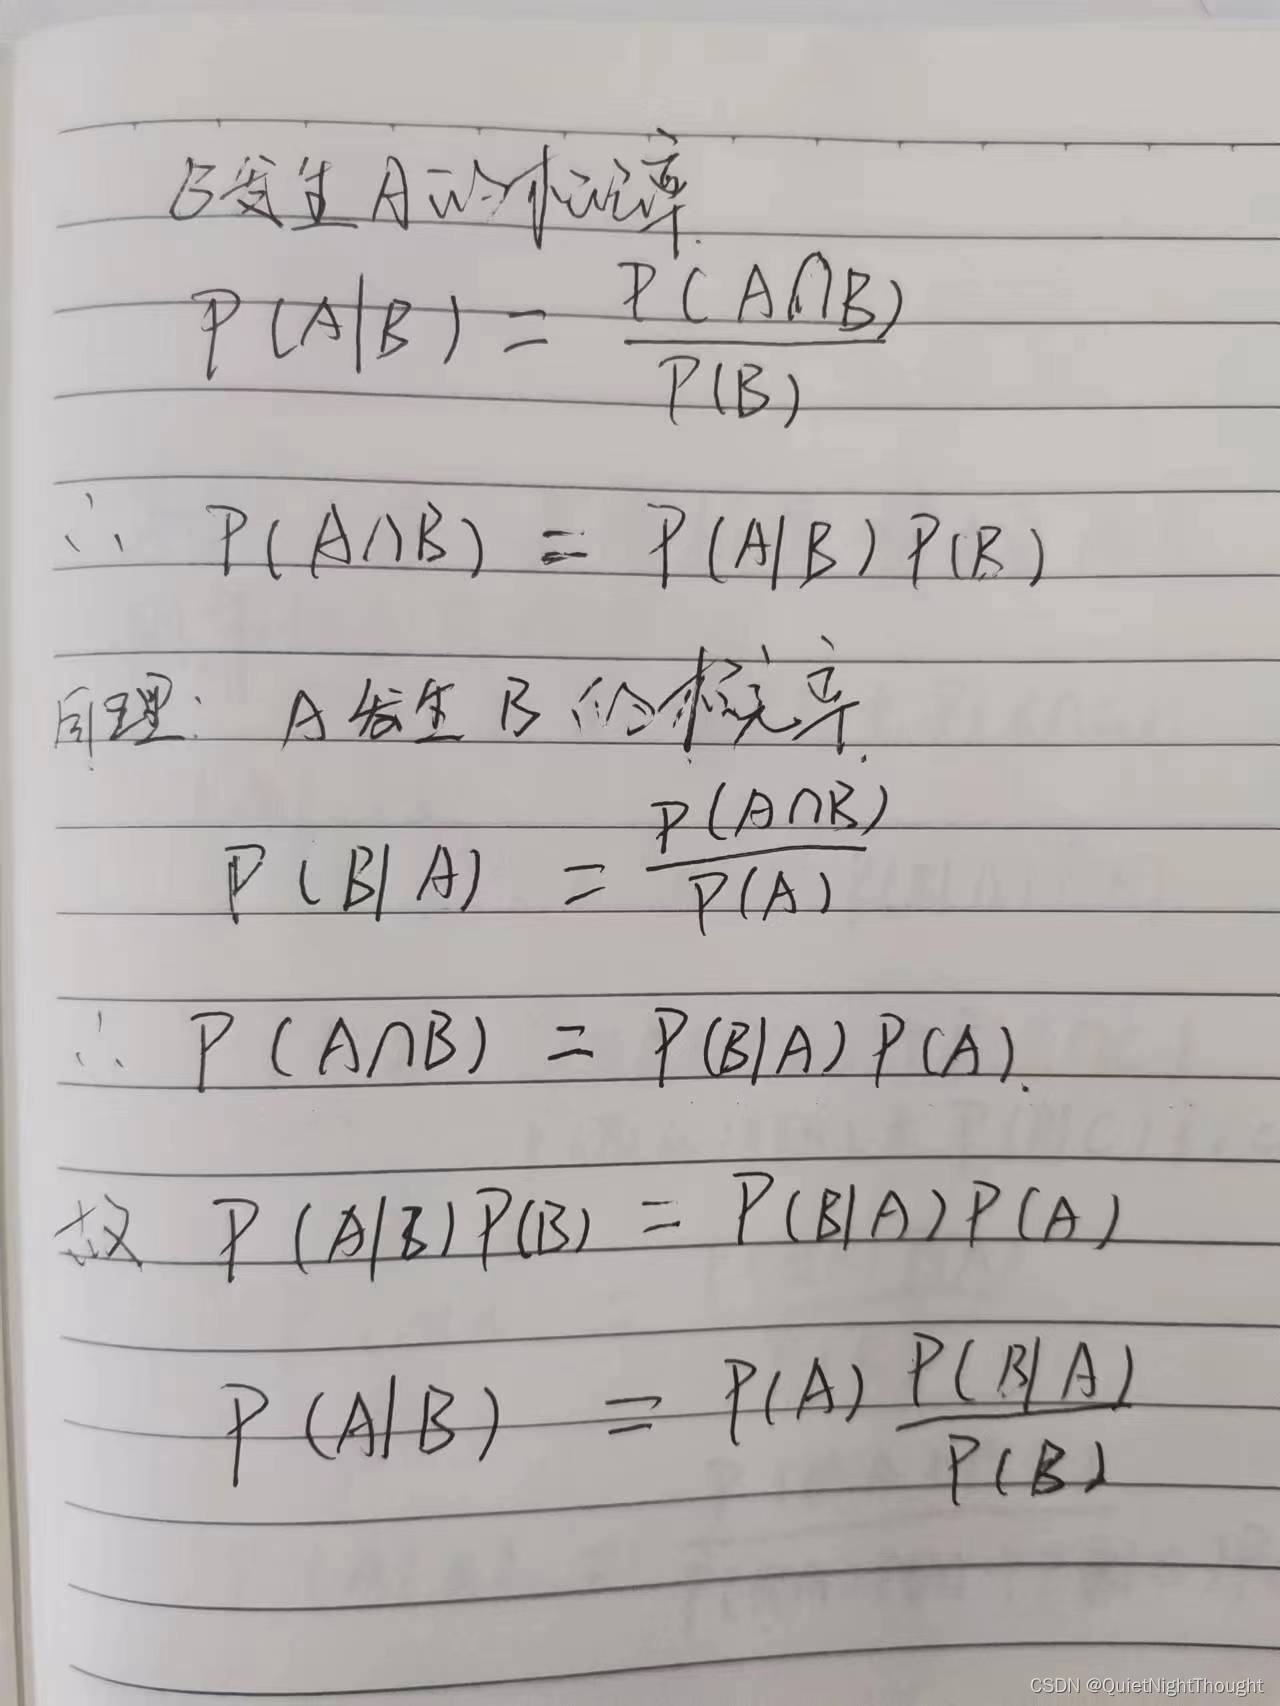 B发生A的概率.
P(A|B) = P(A∩B) / P(B)
∴ P(A∩B) = P(A|B) P(B)
同理: A发生B的概率.
P(B|A) = P(A∩B) / P(A)
∴ P(A∩B) = P(B|A) P(A).
故 P(A|B) P(B) = P(B|A) P(A)
P(A|B) = P(A) P(B|A) / P(B)
CSDN @QuietNightThought